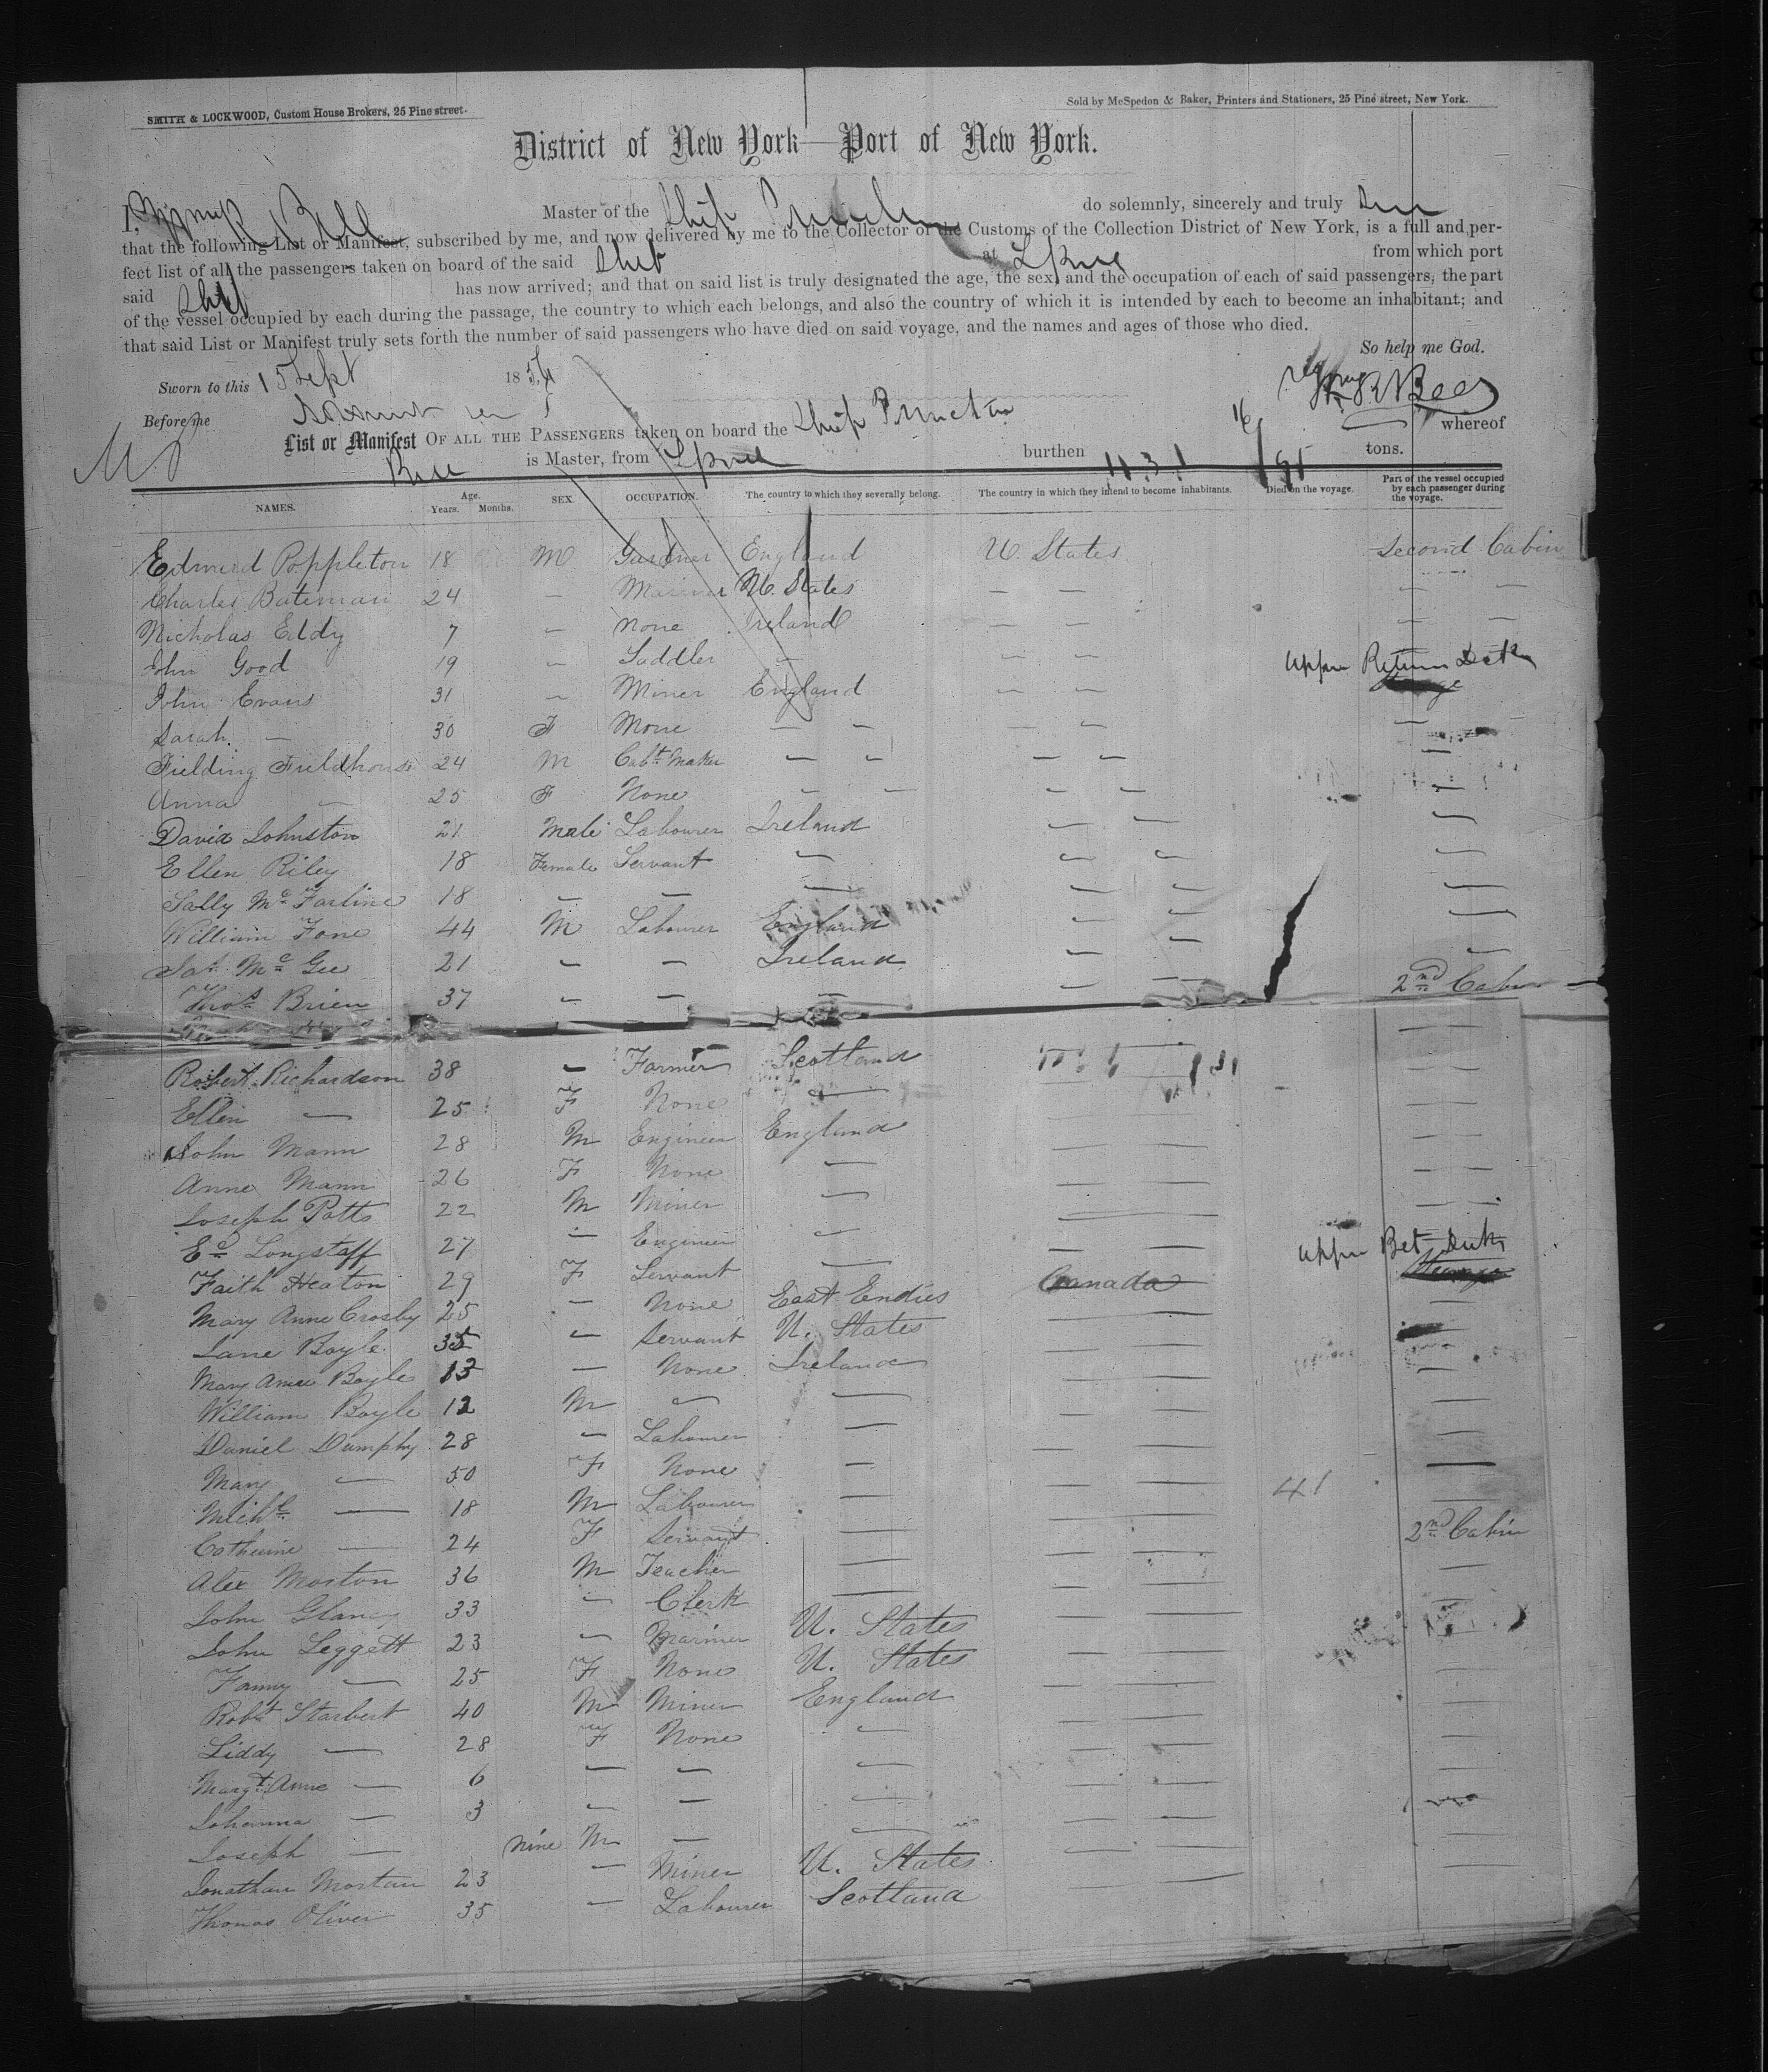 SMITH & LOCKWOOD, Custom House Brokers, 25 Pine street.
Sold by McSpedon & Baker, Printers and Stationers, 25 Pine street, New York.
District of New York—Port of New York.
I, Bell Master of the Ship do solemnly, sincerely and truly
that the following List or Manifest, subscribed by me, and now delivered by me to the Collector of the Customs of the Collection District of New York, is a full and per-
fect list of all the passengers taken on board of the said Ship at Lpool from which port
said Ship has now arrived; and that on said list is truly designated the age, the sex, and the occupation of each of said passengers, the part
of the vessel occupied by each during the passage, the country to which each belongs, and also the country of which it is intended by each to become an inhabitant; and
that said List or Manifest truly sets forth the number of said passengers who have died on said voyage, and the names and ages of those who died.
So help me God.
Sworn to this 1 Sept 185
Before me
List or Manifest OF ALL THE PASSENGERS taken on board the Ship whereof
Bell is Master, from Lpool burthen tons.
NAMES. Age. Years. Months. SEX OCCUPATION. The country to which they severally belong. The country in which they intend to become inhabitants. Died on the voyage. Part of the vessel occupied by each passenger during the voyage.
Edward Poppleton 18 M Gardner England U. States Second Cabin
Charles Bateman 24 — Mariner U. States — — — —
Nicholas Eddy 7 — None Ireland — — — —
John Good 19 — Saddler — — — Upper Between Decks
John Evans 31 — Miner England — —
Sarah — 30 F None — — — — —
Fielding Fieldhouse 24 M Cabt Maker — — — — —
Anna — 25 F None — — — — —
David Johnston 21 Male Labourer Ireland — — —
Ellen Riley 18 Female Servant — — — —
Sally Mc Farline 18 — — — — — —
William Fone 44 M Labourer England — — —
Jas Mc Gee 21 — — Ireland — — —
Thos Brien 37 — — — — — 2nd Cabin
Robert Richardson 38 — Farmer Scotland
Ellen — 25 F None —
John Mann 28 M Engineer England — —
Anne Mann 26 F None — — —
Joseph Potts 22 M Miner — — —
Ed Longstaff 27 — Engineer — — — Upper Bet Decks
Faith Heaton 29 F Servant — Canada
Mary Anne Crosby 25 — None East Endies — —
Jane Boyle 35 — Servant U. States — —
Mary Anne Boyle 13 — None Ireland — —
William Boyle 12 M — — — —
Daniel Dumphy 28 — Labourer — — —
Mary — 50 F None — — —
Michl — 18 M Labourer — — — 41
Catherine — 24 F Servant — — — 2nd Cabin
Alex Morton 36 M Teacher — — —
John Glancy 33 — Clerk — — —
John Leggett 23 — Mariner U. States — —
Fanny — 25 F None U. States — —
Robt Starbert 40 M Miner England — —
Liddy — 28 F None — — —
Margt Anne — 6 — — — — —
Johanna — 3 — — — — —
Joseph — nine M — — — —
Jonathan Mortan 23 — Miner U. States — —
Thomas Oliver 35 — Labourer Scotland